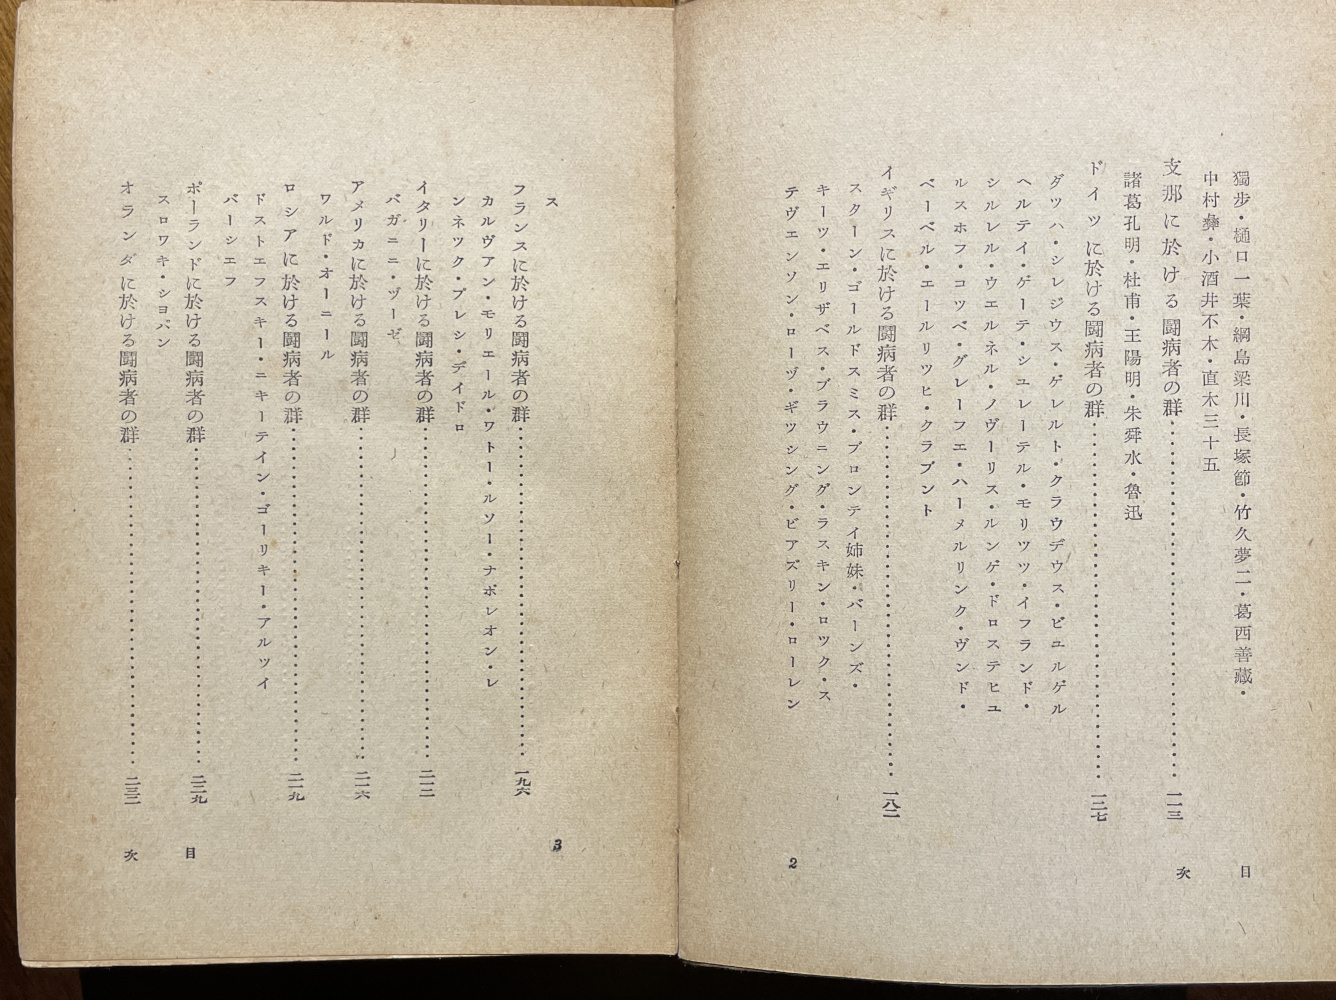 獨步・樋口一葉・綱島梁川・長塚節・竹久夢二・葛西善藏・
中村彝・小酒井不木・直木三十五
支那に於ける闘病者の群……………………一一三
諸葛孔明・杜甫・王陽明・朱舜水・魯迅
ドイツに於ける闘病者の群……………………一二七
ダツハ・シレジウス・ゲレルト・クラウデウス・ビユルゲル
ヘルテイ・ゲーテ・シユレーテル・モリツツ・イフランド・
シルレル・ウエルネル・ノヴーリス・ルンゲ・ドロステヒユ
ルスホフ・コツベ・グレーフエ・ハーメルリンク・ヴンド・
ベーベル・エールリツヒ・クラブント
イギリスに於ける闘病者の群……………………一八二
スターン・ゴールドスミス・ブロンテイ姉妹・バーンズ・
キーツ・エリザベス・ブラウニング・ラスキン・ロツク・ス
テヴエンソン・ローヅ・ギツシング・ビアズリー・ローレン
目次
2
ス
フランスに於ける闘病者の群……………………一九六
カルヴアン・モリエール・ワトー・ルソー・ナポレオン・レ
ンネツク・プレシ・デイドロ
イタリーに於ける闘病者の群……………………二一二
パガニニ・ヅーゼ
アメリカに於ける闘病者の群……………………二一六
ワルド・オーニール
ロシアに於ける闘病者の群……………………二一九
ドストエフスキー・ニキーテイン・ゴーリキー・アルツイ
バーシエフ
ポーランドに於ける闘病者の群……………………二二九
スロワキ・シヨパン
オランダに於ける闘病者の群……………………二三二
目次
3